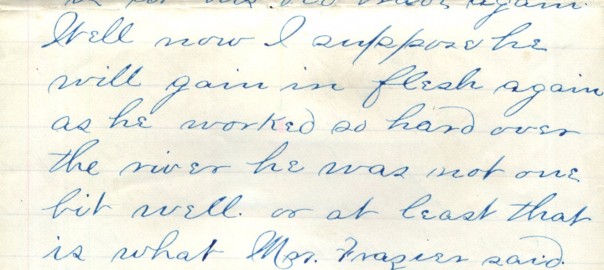 again.
Well now I suppose he
will gain in flesh again
as he worked so hard over
the river he was not one
bit well. or at least that
is what Mr. Frazier said.